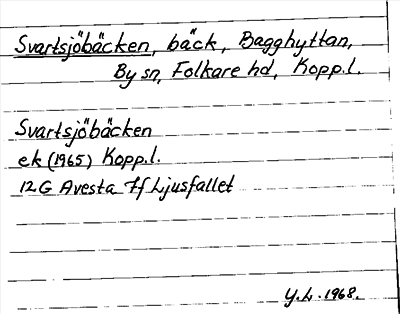 Svartsjöbäcken, bäck, Bagghyttan,
By sn, Folkare hd, Kopp.l.
Svartsjöbäcken
ek (1965) Kopp.l.
12G Avesta 7f Ljusfallet
Y.L. 1968.